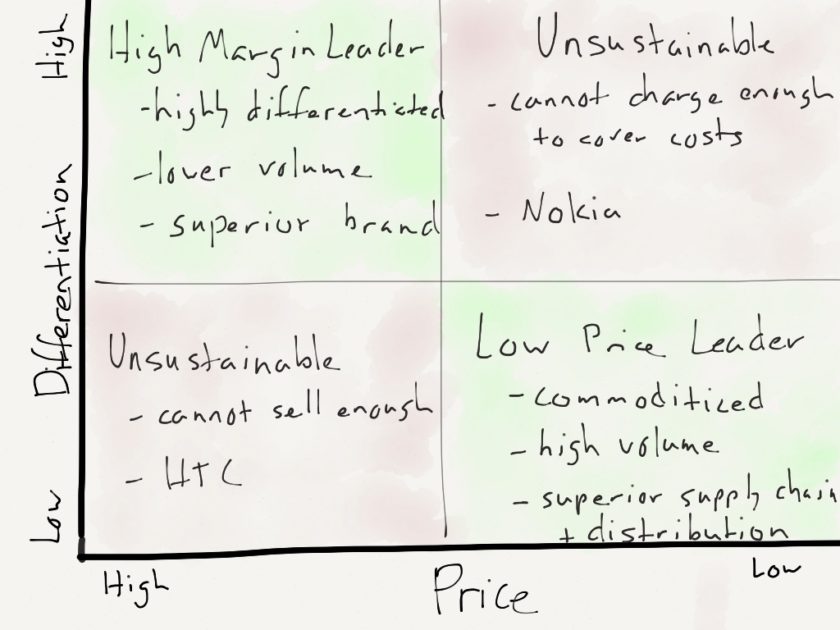 High
Differentiation
Low
High Margin Leader
-highly differentiated
-lower volume
- superior brand
Unsustainable
- cannot charge enough
to cover costs
- Nokia
Unsustainable
- cannot sell enough
- HTC
Low Price Leader
- commoditiced
- high volume
- superior supply chain
+ distribution
High
Price
Low